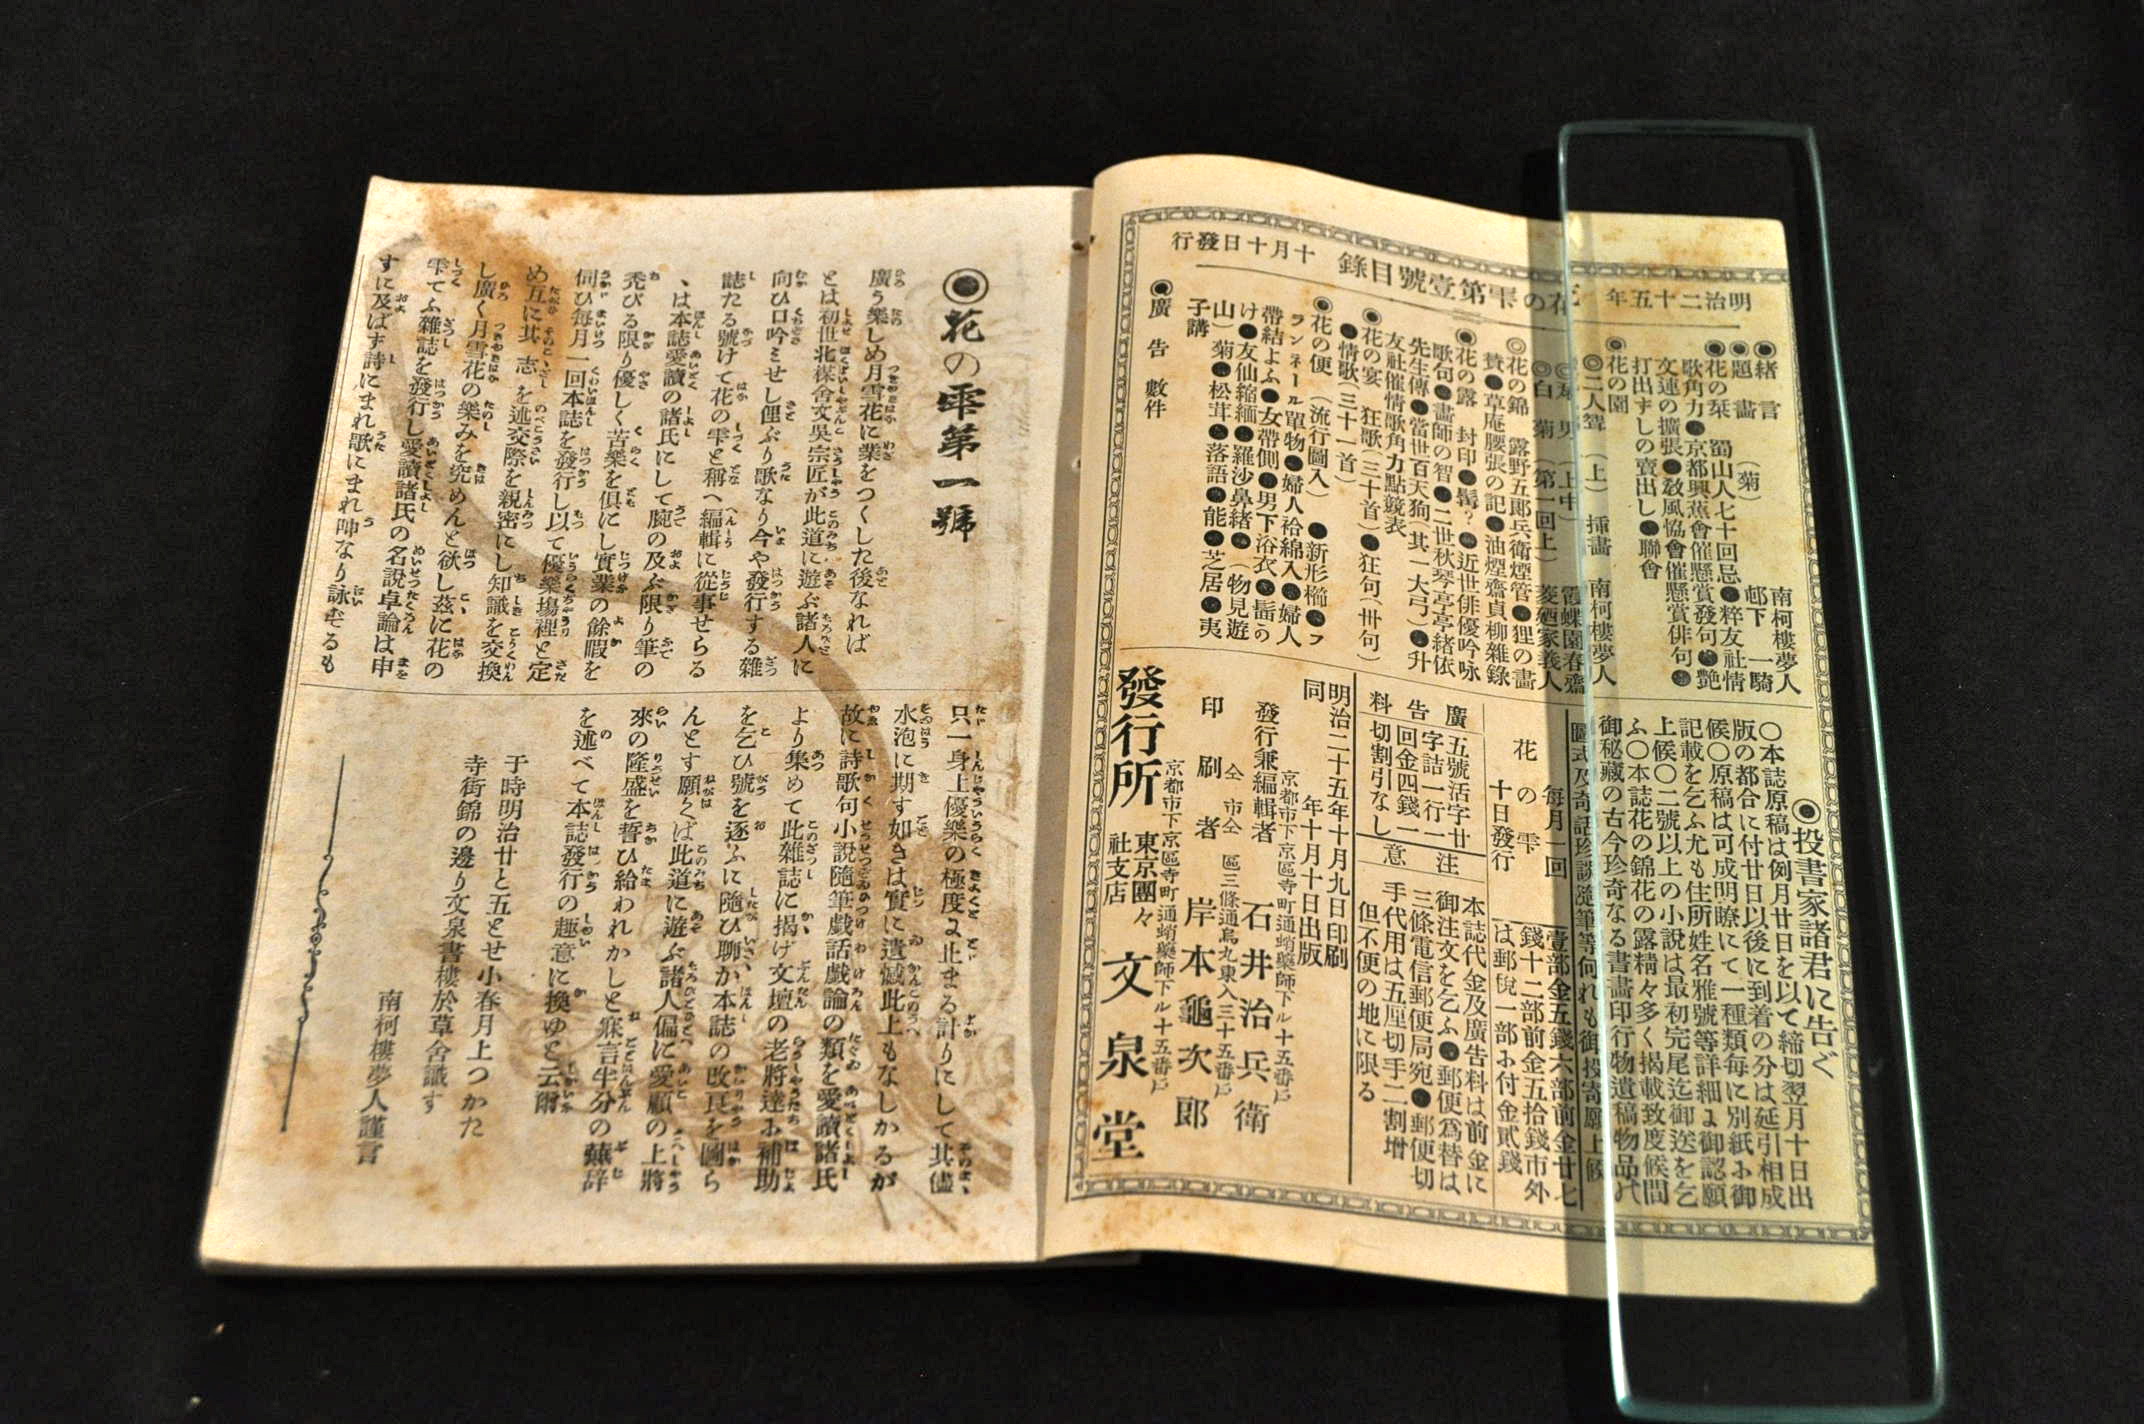 明治二十五年 花の雫第壹號目錄 十月十日發行
◉緒言 南柯樓夢人
◉題畵 (菊) 邨下一騎
◉花の栞 蜀山人七十回忌●粹友社情
歌角力●京都興蕉會催懸賞發句●艶
文連の擴張●敎風協會催懸賞俳句●
打出ずしの賣出し●聯會
◉花の園
◎二人聟 (上) 挿畵 南柯樓夢人
男 (上中) 霞蝶園春齋
◎白菊 (第一回上) 菱廼家義人
◎花の錦 露野五郎兵衛煙管●狸の畵
賛●草庵腰張の記●油煙齋貞柳雜錄
◉花の露 封印●髯?●近世俳優吟咏
歌句●畵師の智●二世秋琴亭亭緒依
先生傳●當世百天狗(其一大弓)●升
友社催情歌角力點競表
◉花の宴 狂歌(三十首)●狂句(卅句)
●情歌(三十一首)
◉花の便 (流行圖入) ●新形櫛●フ
ランネール單物●婦人袷綿入●婦人
帶結よふ●女帶側●男下浴衣●髷の
け●友仙縮緬●羅沙鼻緒● (物見遊
山) 菊●松茸●落語●能●芝居●夷
子講
◉廣告數件
◉投書家諸君に告ぐ
〇本誌原稿は例月廿日を以て締切翌月十日出
版の都合に付廿日以後に到着の分は延引相成
候〇原稿は可成明瞭にて一種類每に別紙お御
記載を乞ふ尤も住所姓名雅號等詳細ゟ御認願
上候〇二號以上の小說は最初完尾迄御送を乞
ふ〇本誌花の錦花の露精々多く揭載致度候間
御秘藏の古今珍奇なる書畵印行物遺稿物品代
圖式及奇話珍談隨筆等何れも御投寄願上候
花の雫 每月一回 十日發行
壹部金五錢六部前金廿七
錢十二部前金五拾錢市外
は郵稅一部お付金貳錢
廣告料
五號活字廿
字詰一行一
回金四錢一
切割引なし
注意
本誌代金及廣告料は前金に
御注文を乞ふ●郵便爲替は
三條電信郵便局宛●郵便切
手代用は五厘切手二割增
但不便の地に限る
明治二十五年十月九日印刷
同 年十月十日出版
京都市下京區寺町通蛸藥師下ル十五番戶
發行兼編輯者 石井治兵衛
仝市仝區三條通烏丸東入三十五番戶
印刷者 岸本龜次郎
京都市下京區寺町通蛸藥師下ル十五番戶
發行所 東京團々社支店 文泉堂
◉花の雫第一號
廣う樂しめ月雪花に業をつくした後なれば
とは初世北楳舍文呉宗匠が此道に遊ぶ諸人に
向ひ口吟ミせし俚ぶり歌なり今や發行する雜
誌たる號けて花の雫と稱へ編輯に從事せらる
ゝは本誌愛讀の諸氏にして腕の及ぶ限り筆の
禿びる限り優しく苦樂を俱にし實業の餘暇を
伺ひ每月一回本誌を發行し以て優樂塲裡と定
め互に其志を述交際を親密にし知識を交換
し廣く月雪花の樂みを究めんと欲し茲に花の
雫てふ雜誌を發行し愛讀諸氏の名說卓論は申
すに及ばす詩にまれ歌にまれ呻なり詠ずるも
只一身上優樂の極度ゟ止まる計りにして其儘
水泡に期す如きは實に遺憾此上もなしかるが
故に詩歌句小說隨筆戲話戲論の類を愛讀諸氏
より集めて此雜誌に揭げ文壇の老將達お補助
を乞ひ號を逐ふに隨ひ聊か本誌の改良を圖ら
んとす願くば此道に遊ぶ諸人偏に愛顧の上將
來の隆盛を誓ひ給われかしと寐言半分の蕪辞
を述べて本誌發行の趣意に換ゆと云爾
于時明治廿と五とせ小春月上つかた
寺街錦の邊り文泉書樓於草舍識す
南柯樓夢人謹言